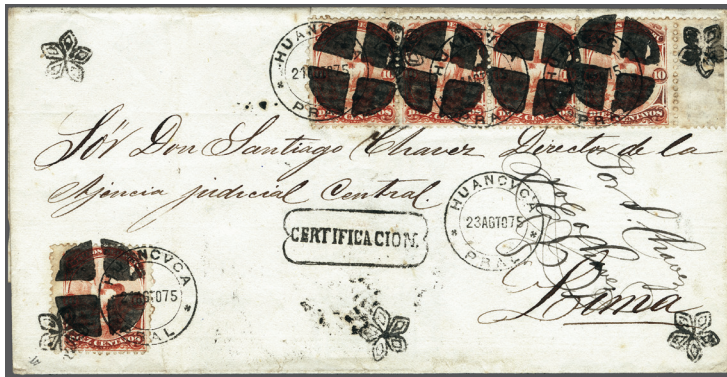 HUANCVCA
21AGTO75
PRAL
10
10
CENTAVOS
Sōr Don Santiago Chavez Director de la
Ajencia judicial Central.
CERTIFICACION.
HUANCVCA
23AGTO75
PRAL
Sor S. Chavez
Lima
HUANCVCA
AGTO75
PRAL